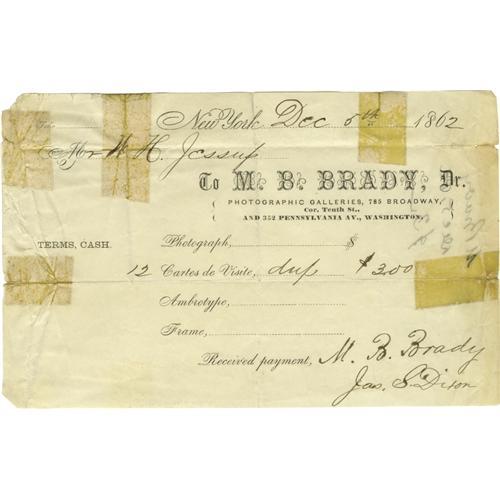 New York Dec 5th 1862
Mr W. H. Jessup
To M. B. BRADY, Dr.
PHOTOGRAPHIC GALLERIES, 785 BROADWAY,
Cor. Tenth St.,
AND 352 PENNSYLVANIA AV., WASHINGTON.
TERMS, CASH. Photograph, $
12 Cartes de Visite, dup $3.00
Ambrotype,
Frame,
Received payment, M. B. Brady
Jas. S. Dixon